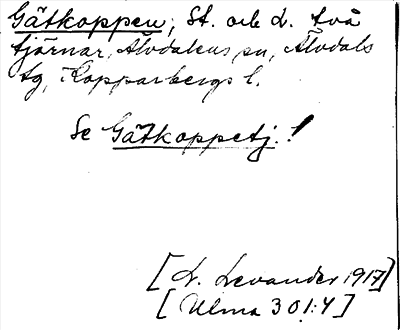 Gåtkoppen, St. och L. två
tjärnar, Älvdalens sn, Älvdals
tg, Kopparbergs l.
Se Gåtkoppetj.!
[L. Levander 1917]
[Ulma 301:4]